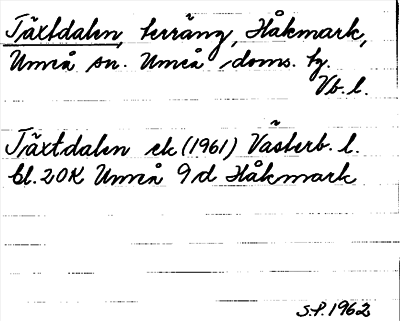 Täxtdalen, terräng, Håkmark,
Umeå sn. Umeå doms. tg.
Vb. l.
Täxtdalen ek (1961) Västerb. l.
bl. 20K Umeå 9d Håkmark
S.P. 1962